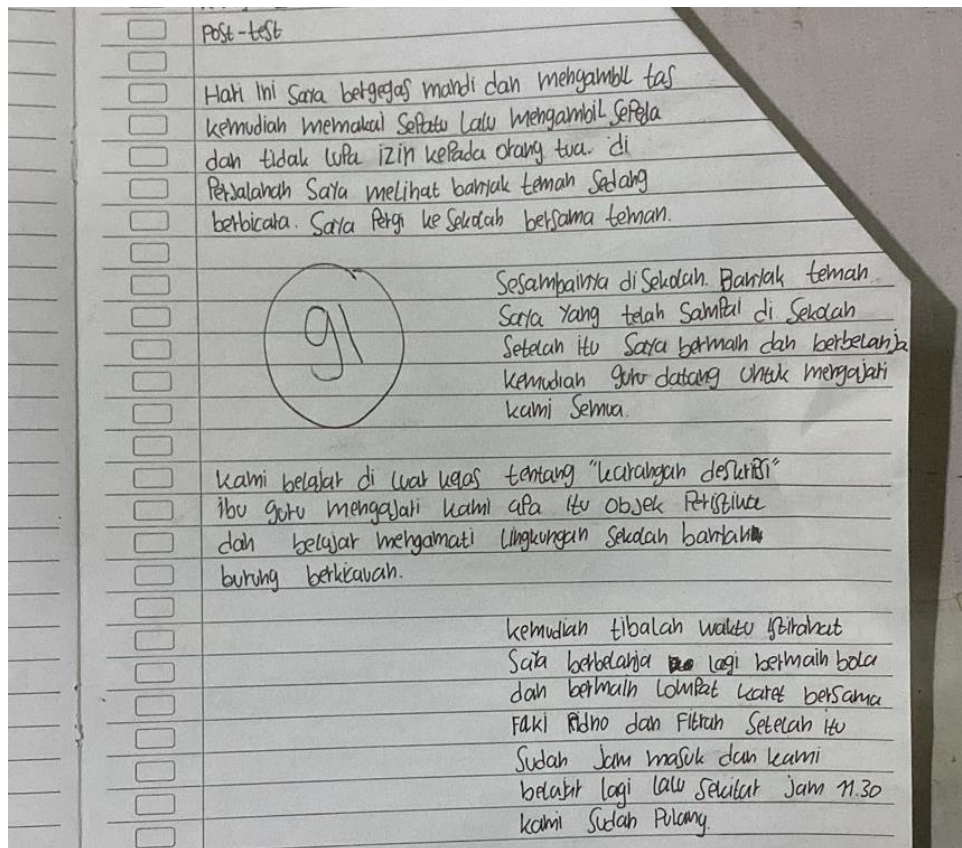 Post-test
Hari ini saya bergegas mandi dan mengambil tas
kemudian memakai sepatu lalu mengambil sepeda
dan tidak lupa izin kepada orang tua. di
Perjalanan saya melihat banyak teman sedang
berbicara. Saya pergi ke sekolah bersama teman.
Sesampainya di sekolah. Banyak teman
saya yang telah sampai di sekolah
setelah itu saya bermain dan berbelanja
kemudian guru datang untuk mengajari
kami semua.
91
kami belajar di luar kelas tentang "karangan deskripsi"
ibu guru mengajari kami apa itu objek peristiwa
dan belajar mengamati lingkungan sekolah banyak
burung berkicauan.
kemudian tibalah waktu istirahat
saya berbelanja lagi bermain bola
dan bermain lompat karet bersama
Faki Ridho dan Fitrah setelah itu
sudah jam masuk dan kami
belajar lagi lalu sekitar jam 11.30
kami sudah pulang.